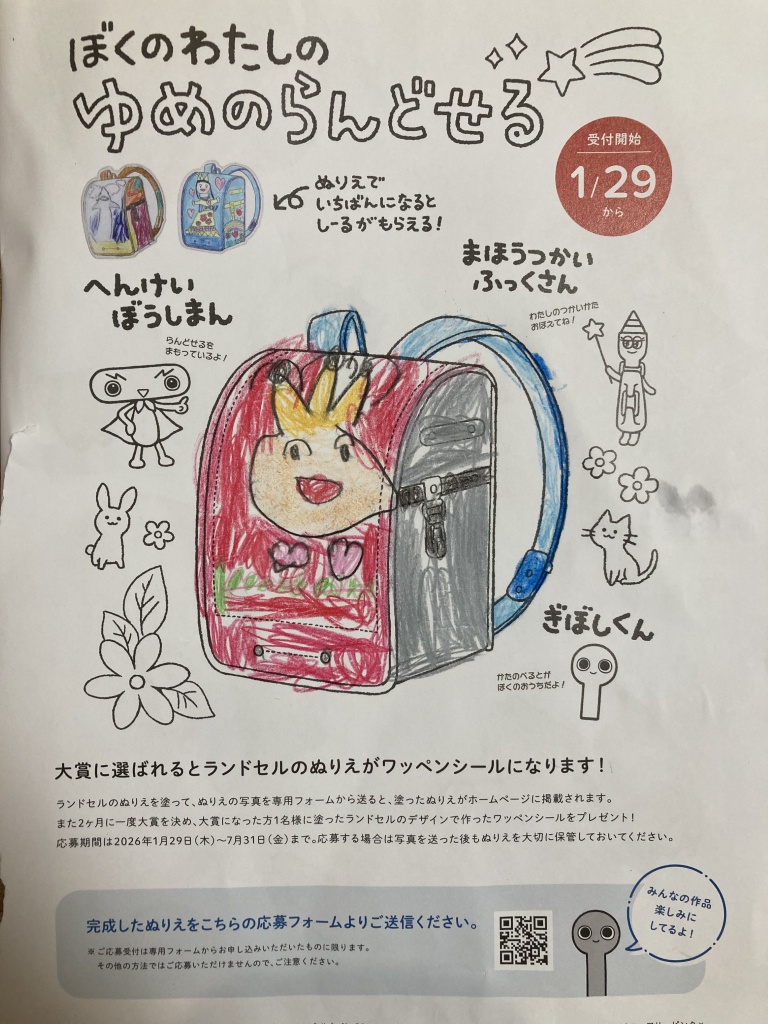 ぼくのわたしの
ゆめのらんどせる
受付開始
1/29
から
ぬりえで
いちばんになると
しーるがもらえる!
まほうつかい
ふっくさん
わたしのつかいかた
おぼえてね!
へんけい
ぼうしまん
らんどせるを
まもっているよ!
ぎぼしくん
かたのべるとが
ぼくのおうちだよ!
大賞に選ばれるとランドセルのぬりえがワッペンシールになります!
ランドセルのぬりえを塗って、ぬりえの写真を専用フォームから送ると、塗ったぬりえがホームページに掲載されます。
また2ヶ月に一度大賞を決め、大賞になった方1名様に塗ったランドセルのデザインで作ったワッペンシールをプレゼント!
応募期間は2026年1月29日(木)〜7月31日(金)まで。応募する場合は写真を送った後もぬりえを大切に保管しておいてください。
完成したぬりえをこちらの応募フォームよりご送信ください。
※ご応募受付は専用フォームからお申し込みいただいたものに限ります。
その他の方法ではご応募いただけませんので、ご注意ください。
みんなの作品
楽しみに
してるよ!